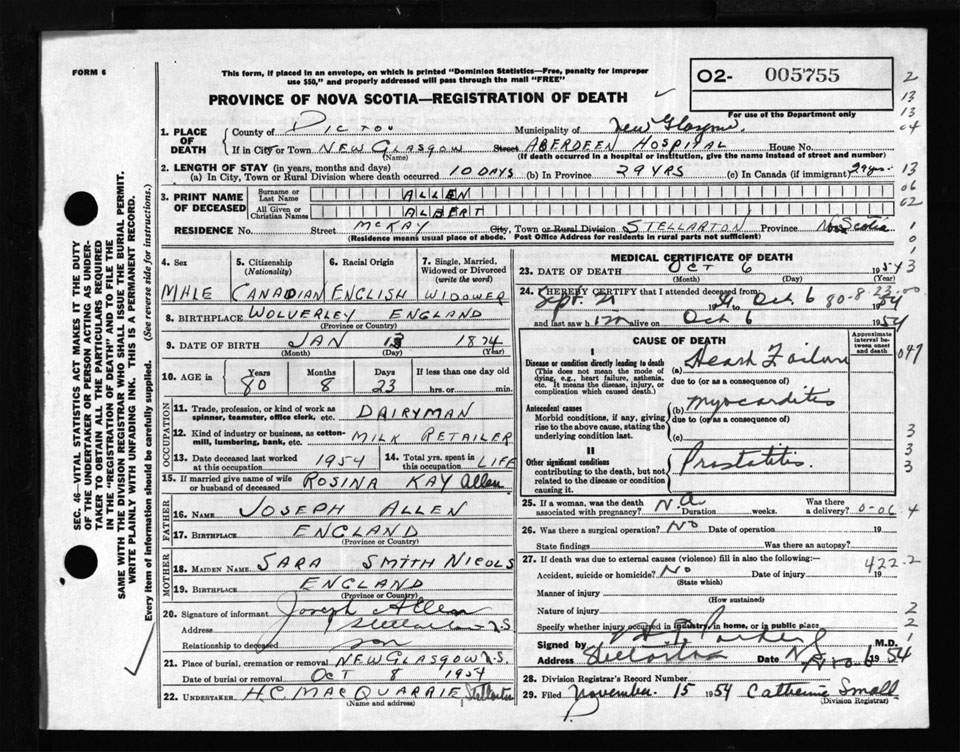 FORM 6
This form, if placed in an envelope, on which is printed "Dominion Statistics—Free, penalty for improper
use $50," and properly addressed will pass through the mail "FREE"
O2- 005755
For use of the Department only
PROVINCE OF NOVA SCOTIA—REGISTRATION OF DEATH
SEC. 46—VITAL STATISTICS ACT MAKES IT THE DUTY
OF THE UNDERTAKER OR PERSON ACTING AS UNDER-
TAKER TO OBTAIN ALL THE PARTICULARS REQUIRED
IN THE "REGISTRATION OF DEATH" AND TO FILE THE
SAME WITH THE DIVISION REGISTRAR WHO SHALL ISSUE THE BURIAL PERMIT.
WRITE PLAINLY WITH UNFADING INK. THIS IS A PERMANENT RECORD.
Every item of information should be carefully supplied. (See reverse side for instructions.)
1. PLACE OF DEATH County of PICTOU Municipality of New Glasgow
If in City or Town NEW GLASGOW Street ABERDEEN HOSPITAL House No.
(Name) (If death occurred in a hospital or institution, give the name instead of street and number)
2. LENGTH OF STAY (in years, months and days)
(a) In City, Town or Rural Division where death occurred 10 DAYS (b) In Province 29 YRS (c) In Canada (if immigrant) 29 yrs.
3. PRINT NAME OF DECEASED Surname or Last Name ALLEN
All Given or Christian Names ALBERT
RESIDENCE No. Street McKAY City, Town or Rural Division STELLARTON Province Nova Scotia
(Residence means usual place of abode. Post Office Address for residents in rural parts not sufficient)
4. Sex 5. Citizenship (Nationality) 6. Racial Origin 7. Single, Married, Widowed or Divorced (write the word)
MALE CANADIAN ENGLISH WIDOWER
8. BIRTHPLACE WOLVERLEY ENGLAND
(Province or Country)
9. DATE OF BIRTH JAN 13 1874
(Month) (Day) (Year)
10. AGE in Years Months Days If less than one day old
80 8 23 hrs. or min.
OCCUPATION
11. Trade, profession, or kind of work as spinner, teamster, office clerk, etc. DAIRYMAN
12. Kind of industry or business, as cotton-mill, lumbering, bank, etc. MILK RETAILER
13. Date deceased last worked at this occupation 1954 14. Total yrs. spent in this occupation LIFE
15. If married give name of wife or husband of deceased ROSINA KAY Allen
FATHER
16. Name JOSEPH ALLEN
17. Birthplace ENGLAND
(Province or Country)
MOTHER
18. Maiden Name SARA SMITH NICOLS
19. Birthplace ENGLAND
(Province or Country)
20. Signature of informant Joseph Allen
Address Stellarton N.S
Relationship to deceased son
21. Place of burial, cremation or removal NEW GLASGOW N.S.
Date of burial or removal OCT 8 1954
22. Undertaker H.C. MACQUARRIE Stellarton
(Name and address)
MEDICAL CERTIFICATE OF DEATH
23. DATE OF DEATH OCT 6 1954
(Month) (Day) (Year)
24. I HEREBY CERTIFY that I attended deceased from:
Sept. 21 1954 Oct 6 1954
80-8-23-00
and last saw him alive on Oct 6 1954
CAUSE OF DEATH
Approximate interval between onset and death
I
Disease or condition directly leading to death
(This does not mean the mode of dying, e.g., heart failure, asthenia, etc. It means the disease, injury, or complication which caused death.)
(a) Heart Failure
due to (or as a consequence of)
Antecedent causes
Morbid conditions, if any, giving rise to the above cause, stating the underlying condition last.
(b) myocarditis
due to (or as a consequence of)
(c)
II
Other significant conditions
contributing to the death, but not related to the disease or condition causing it.
Prostatitis.
25. If a woman, was the death associated with pregnancy? N.A Duration weeks. Was there a delivery? 0-06
26. Was there a surgical operation? No Date of operation 19
State findings Was there an autopsy?
27. If death was due to external causes (violence) fill in also the following:
422-2
Accident, suicide or homicide? No Date of injury 19
(State which)
Manner of injury
(How sustained)
Nature of injury
Specify whether injury occurred in industry, in home, or in public place
Signed by M.D.
Address Stellarton Date 6 1954
28. Division Registrar's Record Number
29. Filed November 15 1954 Catherine Small
(Division Registrar)
2
13
13
04
13
06
02
1
0
1
3
047
3
3
3
4
2
2
1